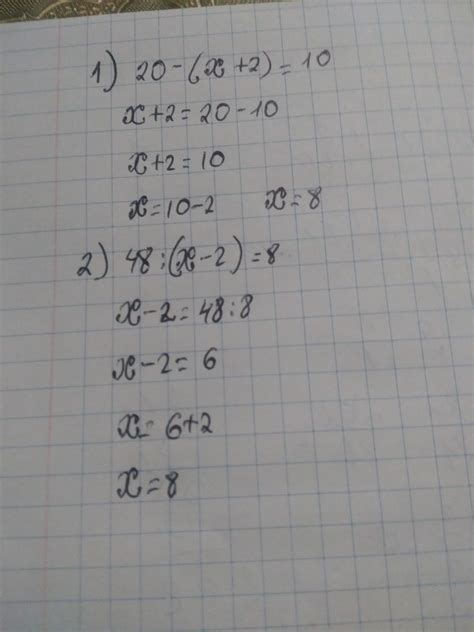 1) 20-(x+2)=10
x+2=20-10
x+2=10
x=10-2 x=8
2) 48:(x-2)=8
x-2=48:8
x-2=6
x=6+2
x=8